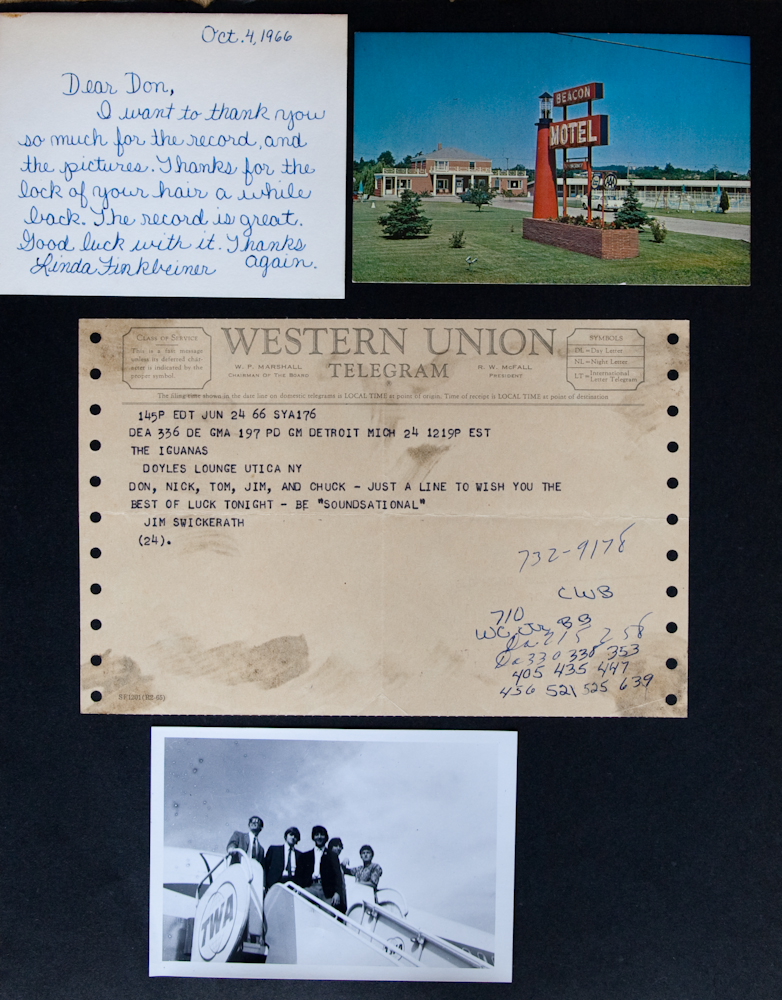 Oct. 4, 1966
Dear Don,
I want to thank you
so much for the record, and
the pictures. Thanks for the
lock of your hair a while
back. The record is great.
Good luck with it. Thanks
Linda Finkbeiner again.
BEACON
MOTEL
CLASS OF SERVICE
This is a fast message
unless its deferred char-
acter is indicated by the
proper symbol.
WESTERN UNION
TELEGRAM
W. P. MARSHALL
CHAIRMAN OF THE BOARD
R. W. McFALL
PRESIDENT
SYMBOLS
DL=Day Letter
NL=Night Letter
LT=International Letter Telegram
The filing time shown in the date line on domestic telegrams is LOCAL TIME at point of origin. Time of receipt is LOCAL TIME at point of destination
145P EDT JUN 24 66 SYA176
DEA 336 DE GMA 197 PD GM DETROIT MICH 24 1219P EST
THE IGUANAS
DOYLES LOUNGE UTICA NY
DON, NICK, TOM, JIM, AND CHUCK - JUST A LINE TO WISH YOU THE
BEST OF LUCK TONIGHT - BE "SOUNDSATIONAL"
JIM SWICKERATH
(24).
732-9178
CWB
710
215 258
330 338 353
405 435 447
456 521 525 639
SF1201(R2-65)
TWA